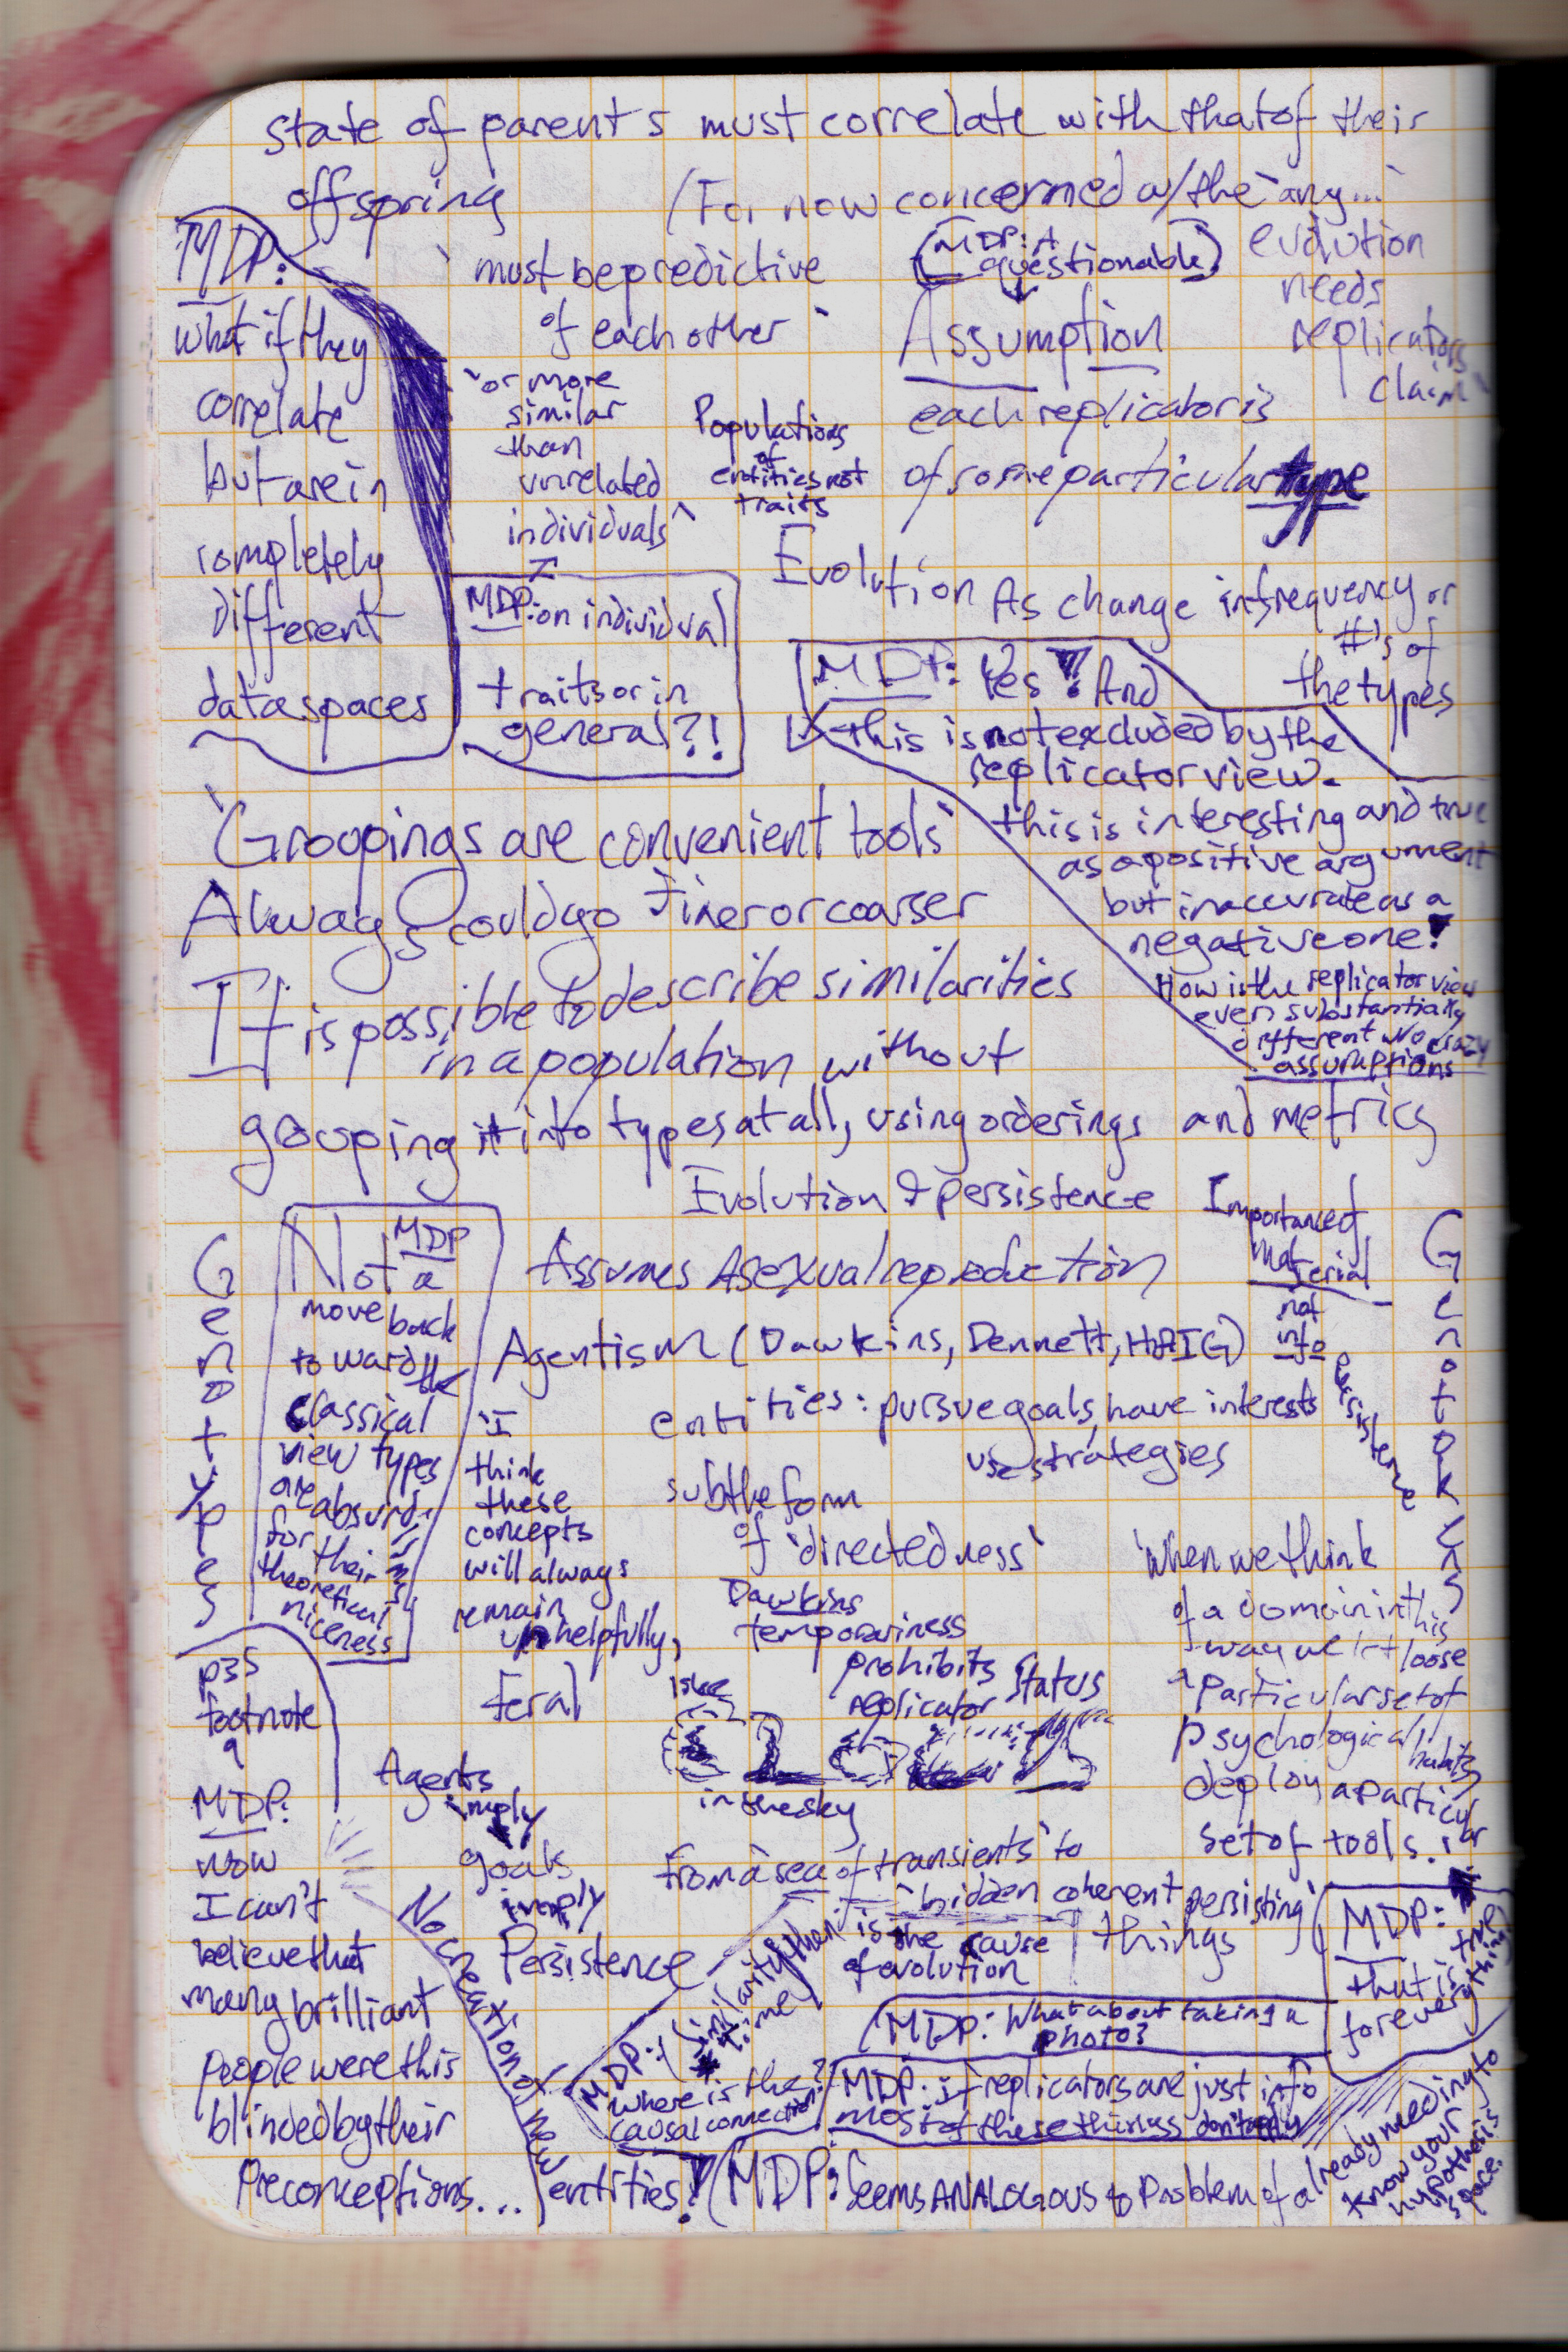 state of parents must correlate with that of their
offspring
(For now concerned w/ the 'any...'
evolution
needs
replicators
claim
MDP:
what if they
correlate
but are in
completely
different
data spaces
'must be predictive
of each other'
(MDP: A
questionable)
Assumption
each replicator is
of some particular type
'or more
similar
than
unrelated
individuals'
MDP: on individual
traits or in
general?!
Populations
of
entities not
traits
Evolution As change in frequency or
#'s of
the types
MDP: Yes! And
this is not excluded by the
replicator view.
this is interesting and true
as a positive argument
but inaccurate as a
negative one!
How is the replicator view
even substantially
different w/o crazy
assumptions
'Groupings are convenient tools'
Always could go finer or coarser
It is possible to describe similarities
in a population without
grouping it into types at all, using orderings and metrics
Evolution & persistence
Importance of
material
not
info
persistence
Genotypes
Genotokens
MDP
Not a
move back
toward the
classical
view types
are absurd
for their
theoretical
niceness
Assumes Asexual reproduction
Agentism (Dawkins, Dennett, HAIG)
entities: pursue goals, have interests
use strategies
'I
think
these
concepts
will always
remain
unhelpfully,
feral
subtle form
of 'directedness'
Dawkins
temporariness
prohibits
replicator status
like
clouds
in the sky
'When we think
of a domain in this
way we let loose
a particular set of
psychological habits,
deploy a particular
set of tools.'
MDP:
that is true
for everything
p35
footnote
9
MDP:
now
I can't
believe that
many brilliant
people were this
blinded by their
preconceptions...
Agents
imply
goals
imply
Persistence
from a 'sea of transients' to
'hidden coherent persisting'
things
is the cause
of evolution
No creation of new entities!
MDP: (similarity then time
where is the
causal connection?
MDP: What about taking a
photo?
MDP: if replicators are just info
most of these things don't apply
(MDP: Seems ANALOGOUS to Problem of already needing to
know your
hypothesis
space.